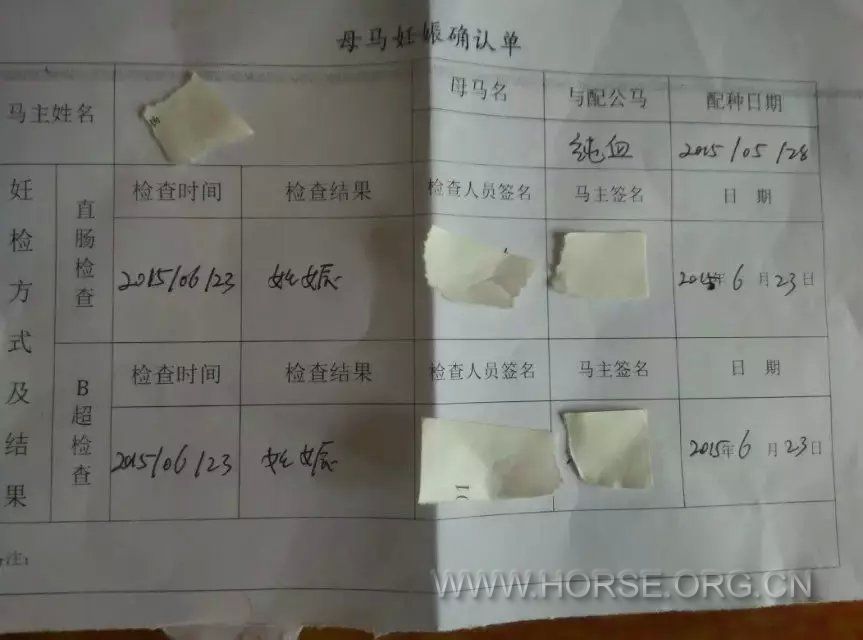 母马妊娠确认单
马主姓名 母马名 与配公马 配种日期
纯血 2015/05/28
妊检方式及结果
直肠检查
检查时间 检查结果 检查人员签名 马主签名 日 期
2015/06/23 妊娠 2015年6月23日
B超检查
检查时间 检查结果 检查人员签名 马主签名 日 期
2015/06/23 妊娠 2015年6月23日
注:
WWW.HORSE.ORG.CN